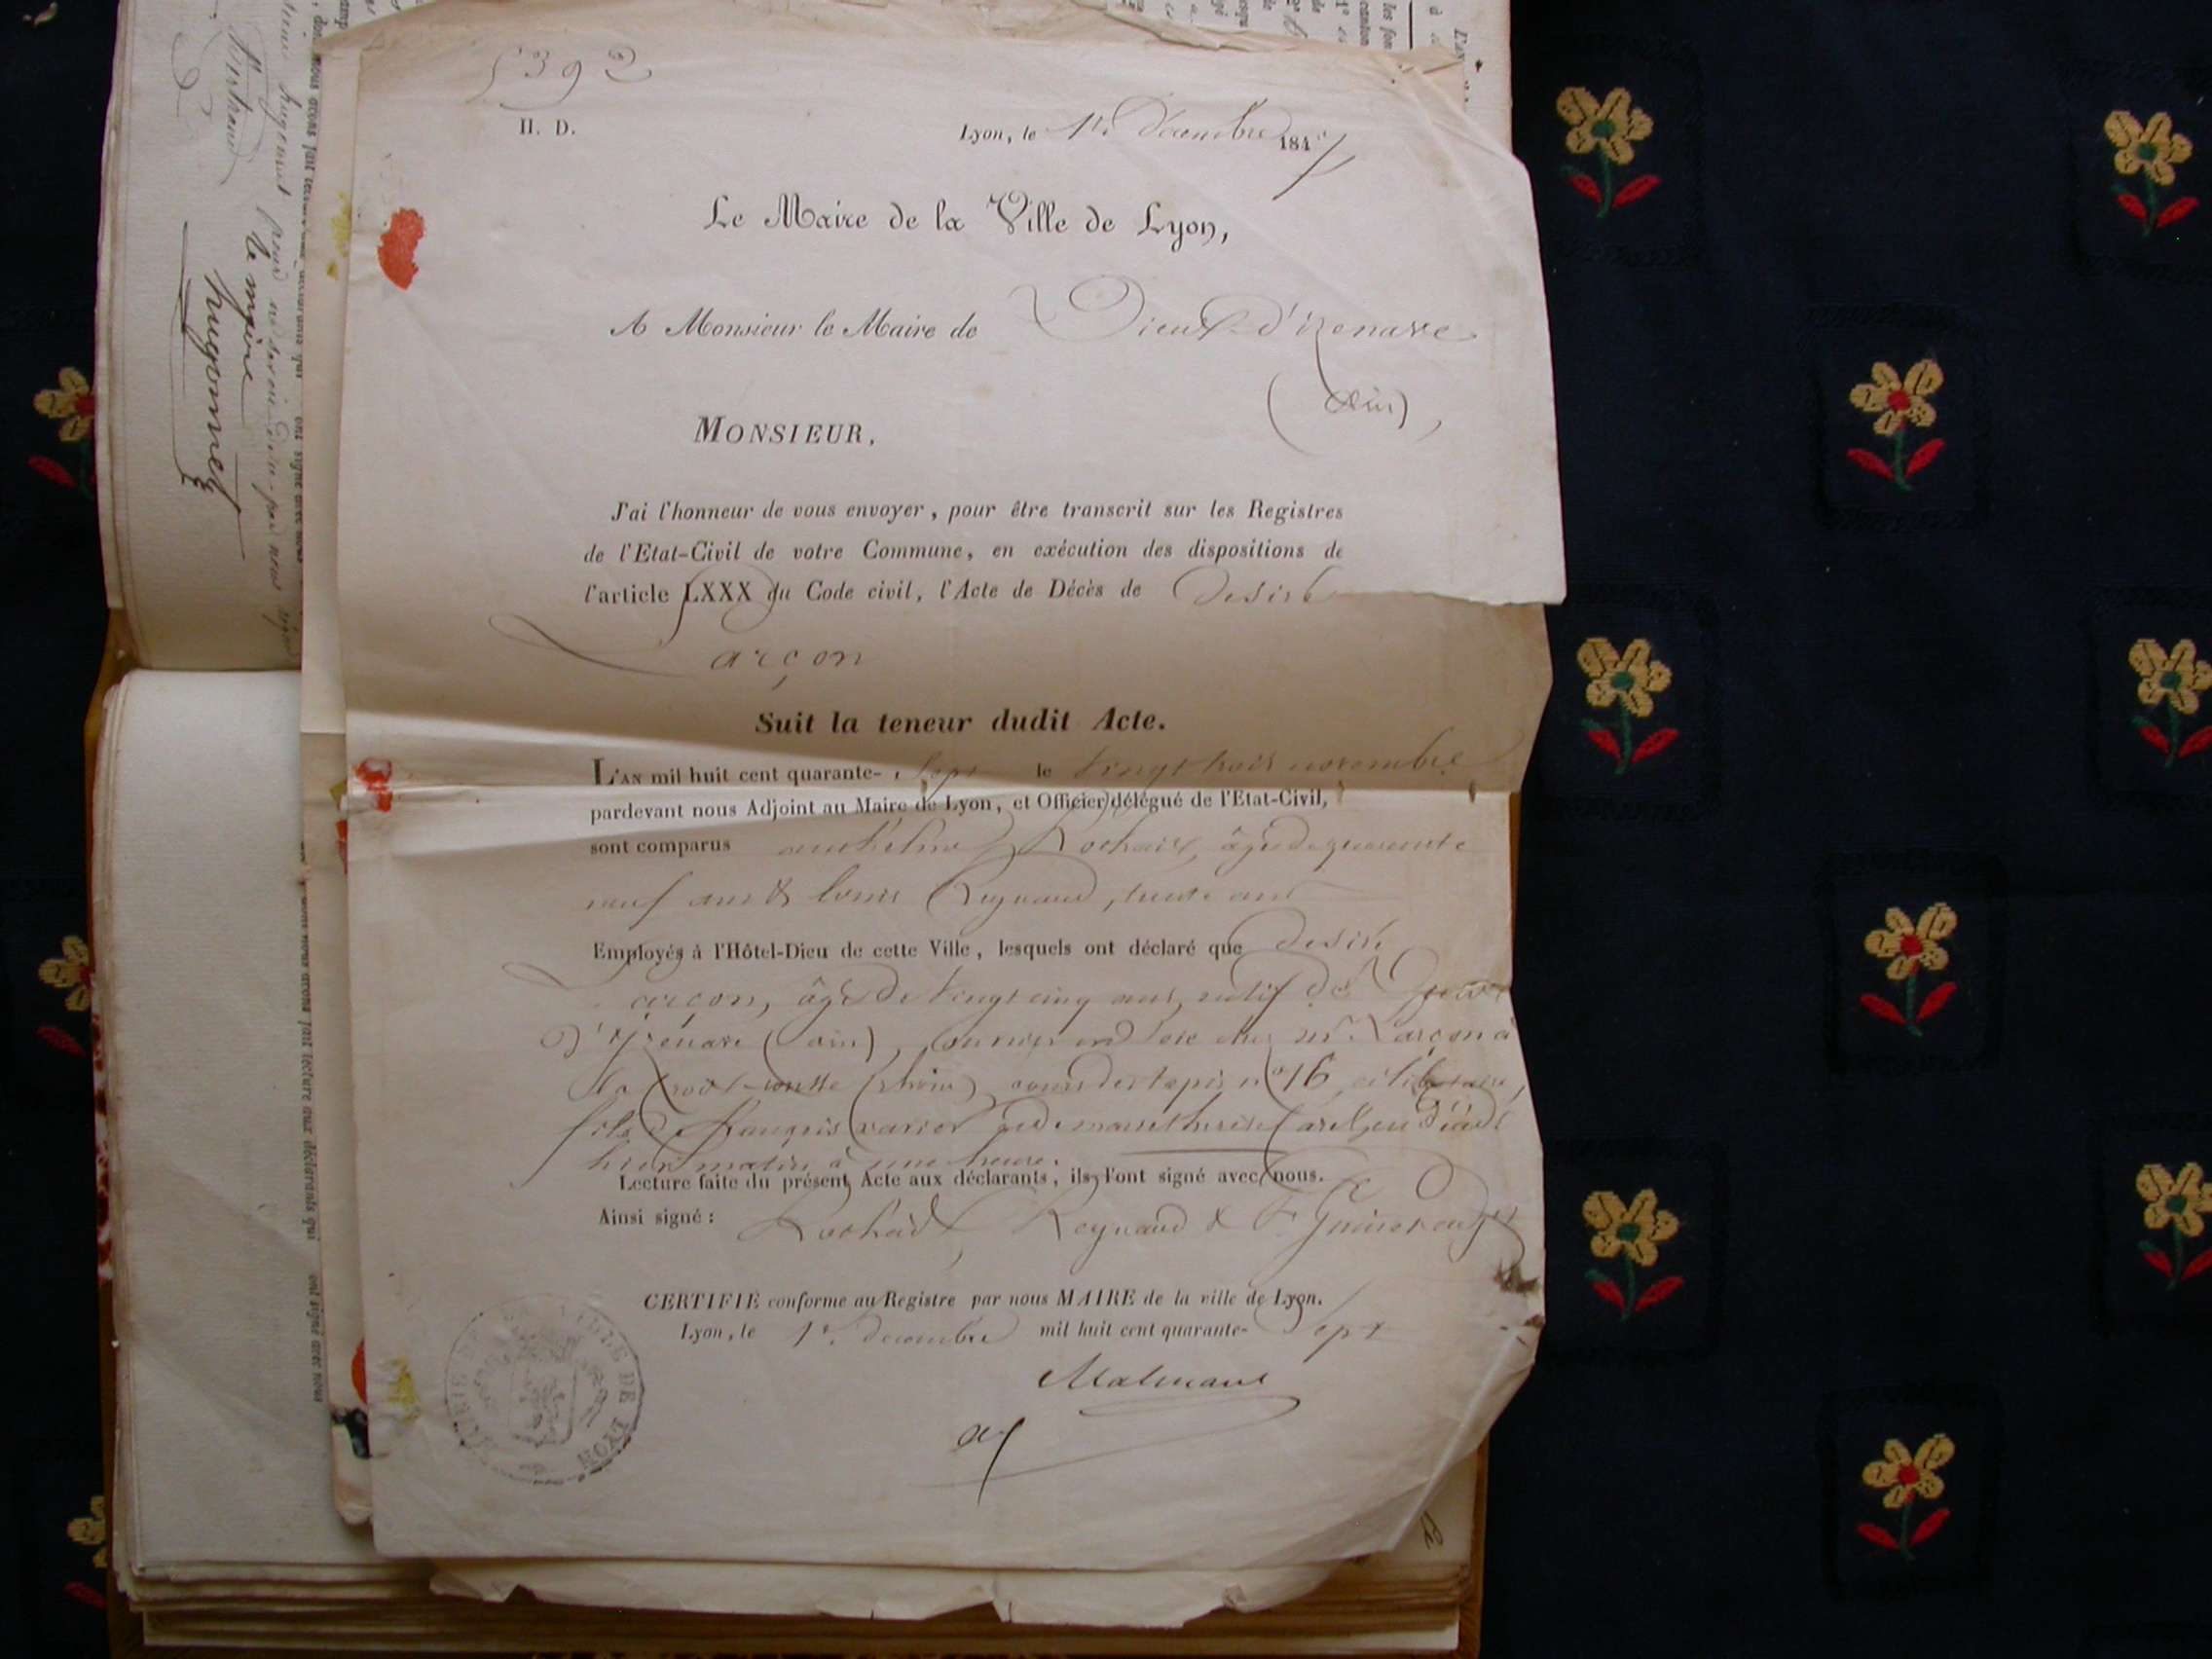 5392
H. D.
Lyon, le 1er Décembre 1847
Le Maire de la Ville de Lyon,
A Monsieur le Maire de Vieux-d'izenave
(Ain),
MONSIEUR,
J'ai l'honneur de vous envoyer, pour être transcrit sur les Registres
de l'Etat-Civil de votre Commune, en exécution des dispositions de
l'article LXXX du Code civil, l'Acte de Décès de Desiré
Larçon
Suit la teneur dudit Acte.
L'AN mil huit cent quarante- Sept le vingt trois novembre
pardevant nous Adjoint au Maire de Lyon, et Officier délégué de l'Etat-Civil,
sont comparus anthelme Rochaix, âgé de quarante
neuf ans & louis Reynaud, trente ans
Employés à l'Hôtel-Dieu de cette Ville, lesquels ont déclaré que Desiré
Larçon, âgé de vingt cinq ans, natif de Vieux
d'izenave (ain), ouvrier en Soie chez mr. Larçon à
la Croix-rousse (rhône), cours des tapis no 16, célibataire,
fils de françois xavier et de marie therese est décédé
hier matin à une heure.
Lecture faite du présent Acte aux déclarants, ils l'ont signé avec nous.
Ainsi signé : Rochaix, Reynaud &
CERTIFIÉ conforme au Registre par nous MAIRE de la ville de Lyon.
Lyon, le 1er décembre mil huit cent quarante- Sept
DE LYON
le maire
hugonnet